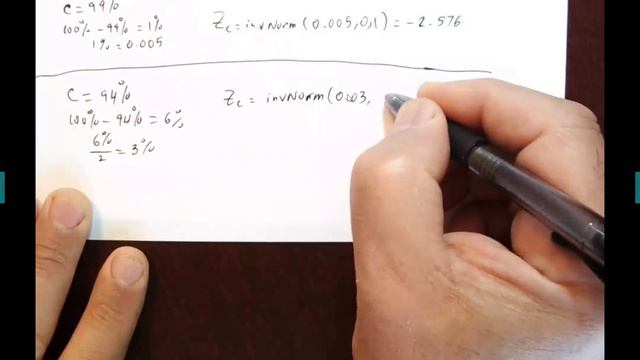 C = 99%
100% - 99% = 1%
1% = 0.005
Zc = invNorm(0.005,0,1) = -2.576
C = 94%
100% - 94% = 6%
6%/2 = 3%
Zc = invNorm(0.03,